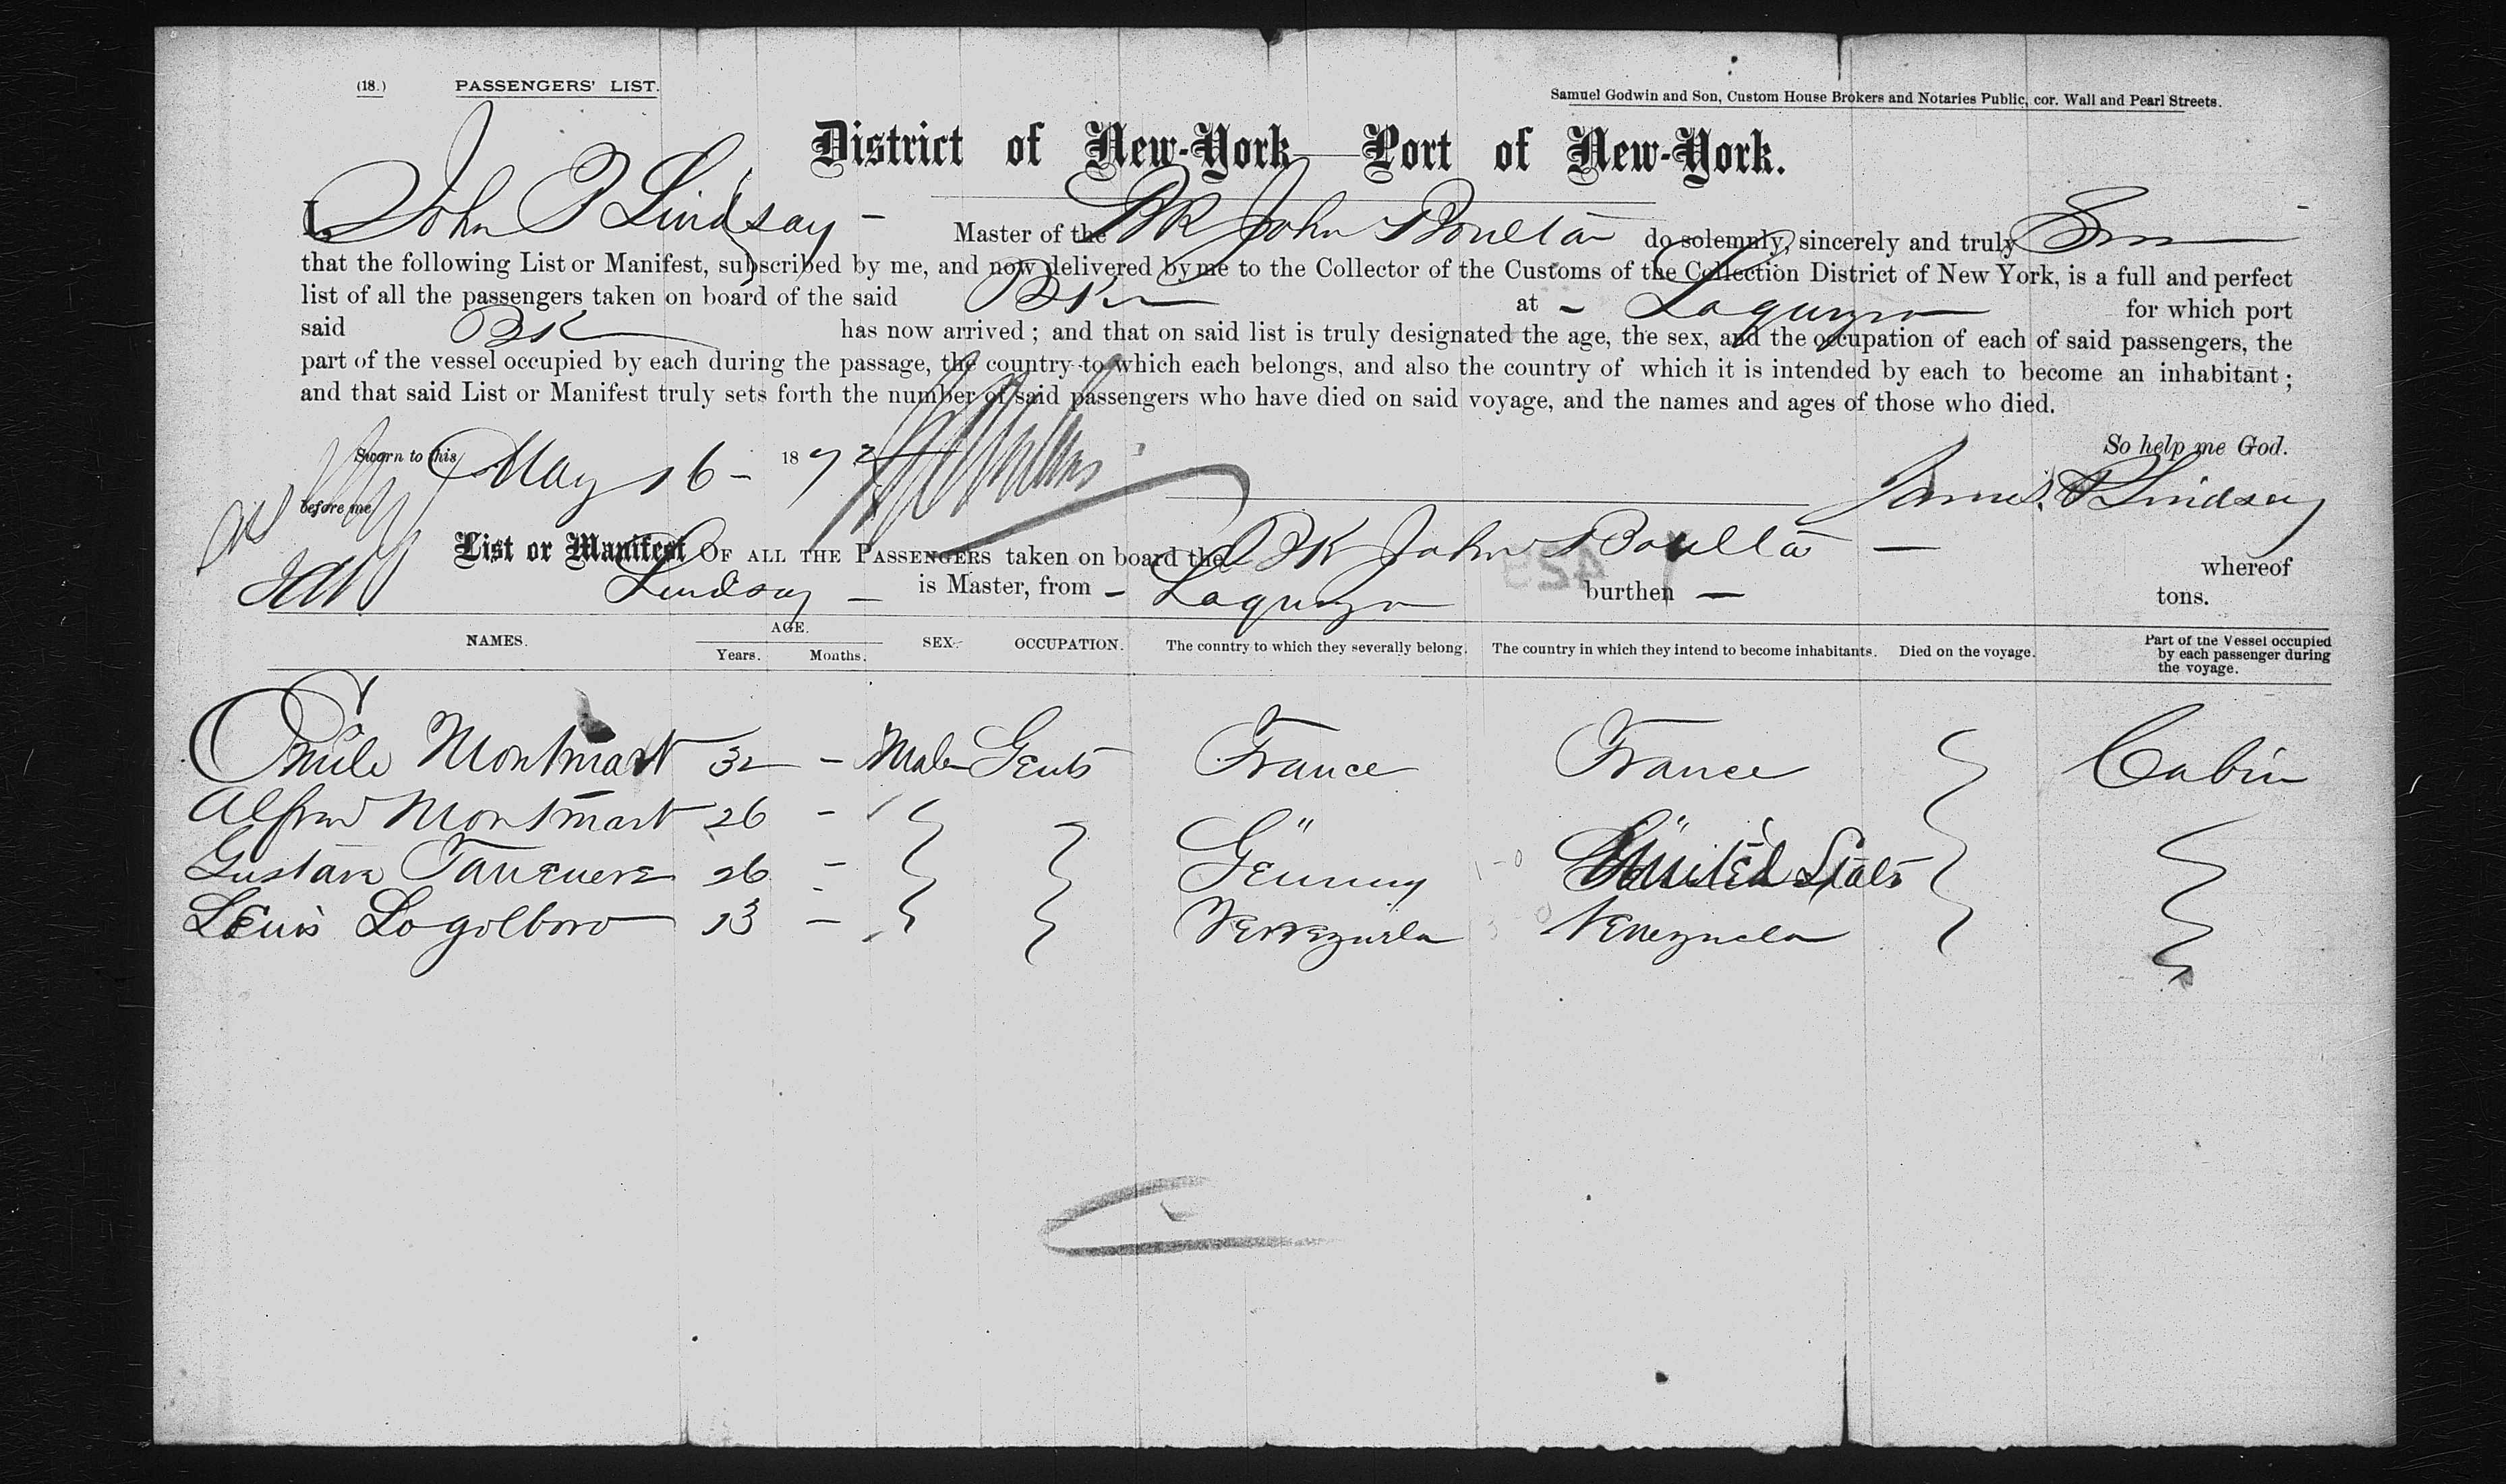 (18.) PASSENGERS' LIST.
Samuel Godwin and Son, Custom House Brokers and Notaries Public, cor. Wall and Pearl Streets.
District of New-York—Port of New-York.
I, John P Lindsay - Master of the BK John Boulton do solemnly, sincerely and truly
that the following List or Manifest, subscribed by me, and now delivered by me to the Collector of the Customs of the Collection District of New York, is a full and perfect
list of all the passengers taken on board of the said BK at - Laguayra for which port
said BK has now arrived; and that on said list is truly designated the age, the sex, and the occupation of each of said passengers, the
part of the vessel occupied by each during the passage, the country to which each belongs, and also the country of which it is intended by each to become an inhabitant;
and that said List or Manifest truly sets forth the number of said passengers who have died on said voyage, and the names and ages of those who died.
So help me God.
Sworn to this May 16 - 187
James P Lindsay
before me
List or Manifest OF ALL THE PASSENGERS taken on board the BK John Boulton — whereof
Lindsay — is Master, from - Laguayra burthen — tons.
NAMES. AGE. Years. Months. SEX. OCCUPATION. The conntry to which they severally belong. The country in which they intend to become inhabitants. Died on the voyage. Part of the Vessel occupied by each passenger during the voyage.
Emile Montmart 32 - Male Gents France France Cabin
Alfred Montmart 26 - " "
Gustave 26 - Germany United States
Louis 13 - Venezuela Venezuela